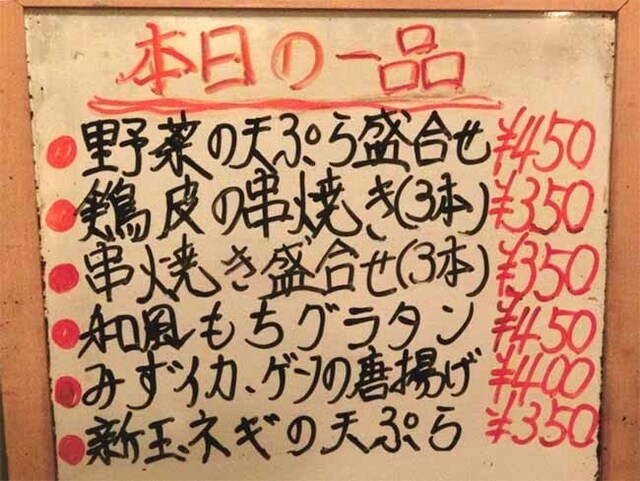 本日の一品
野菜の天ぷら盛合せ ¥450
鶏皮の串焼き(3本) ¥350
串焼き盛合せ(3本) ¥350
和風もちグラタン ¥450
みずイカ、ゲソの唐揚げ ¥400
新玉ネギの天ぷら ¥350